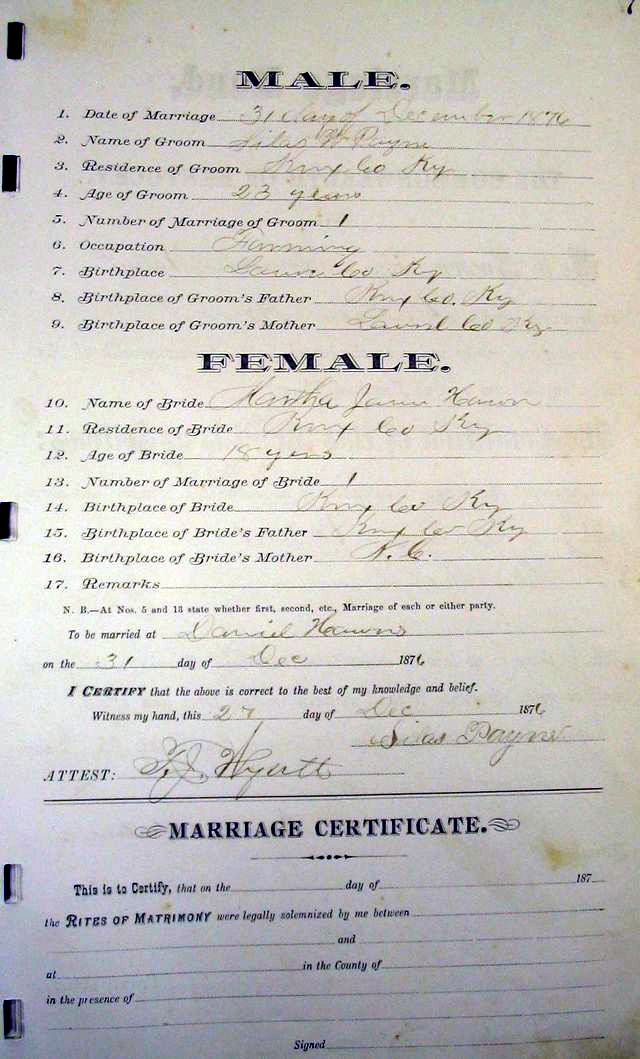 MALE.
1. Date of Marriage 31 day of December 1876
2. Name of Groom Silas W Payne
3. Residence of Groom Knx Co Ky
4. Age of Groom 23 years
5. Number of Marriage of Groom 1
6. Occupation Farming
7. Birthplace Co Ky
8. Birthplace of Groom's Father Knx Co. Ky
9. Birthplace of Groom's Mother Laurel Co Ky
FEMALE.
10. Name of Bride Martha Jane
11. Residence of Bride Knx Co Ky
12. Age of Bride 18 yers
13. Number of Marriage of Bride 1
14. Birthplace of Bride Knx Co Ky
15. Birthplace of Bride's Father Knx Co Ky
16. Birthplace of Bride's Mother N. C.
17. Remarks
N. B.—At Nos. 5 and 13 state whether first, second, etc., Marriage of each or either party.
To be married at Daniel
on the 31 day of Dec 1876
I CERTIFY that the above is correct to the best of my knowledge and belief.
Witness my hand, this 27 day of Dec 1876
Silas Payne
ATTEST: Wyatt
MARRIAGE CERTIFICATE.
This is to Certify, that on the day of 187
the RITES OF MATRIMONY were legally solemnized by me between
and
at in the County of
in the presence of
Signed